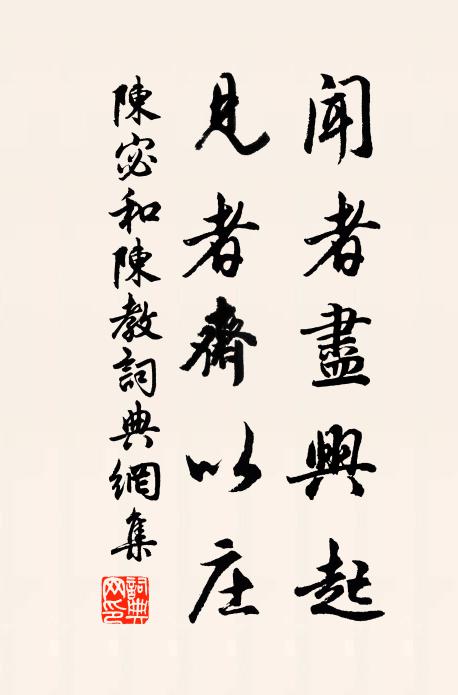 聞者盡興起
見者齋以庄
陳宓和陳教詞典網集
詞典網印